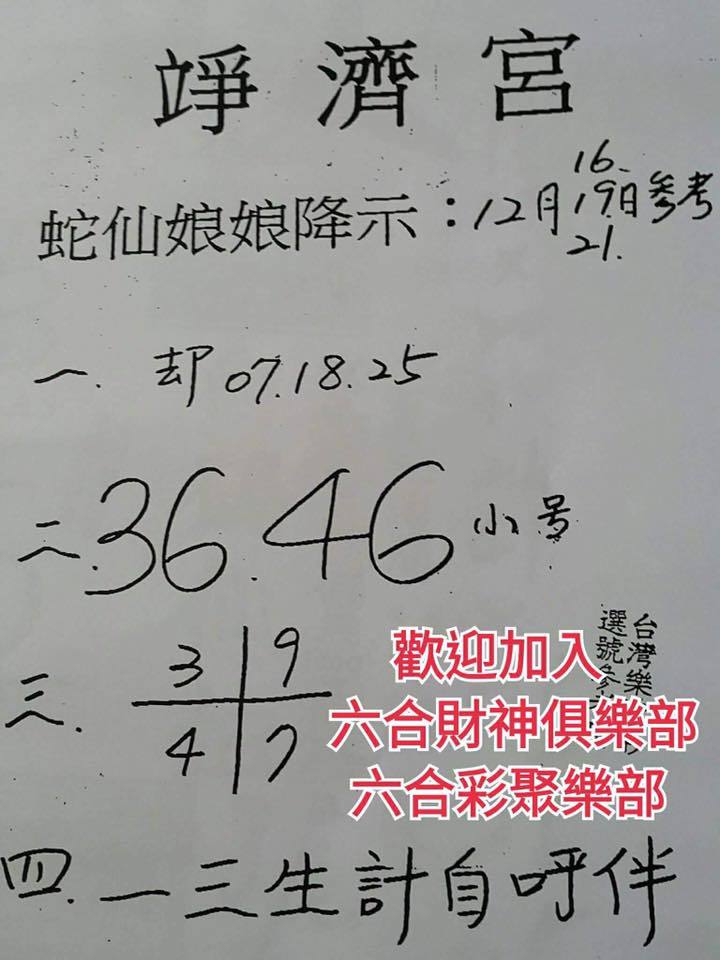 竫濟宮
蛇仙娘娘降示：12月16.19.21.日參考
一、却07.18.25
二.36.46小号
三、3 9
4 7
台灣樂
選號參
歡迎加入
六合財神俱樂部
六合彩聚樂部
四.一三生計自呼伴